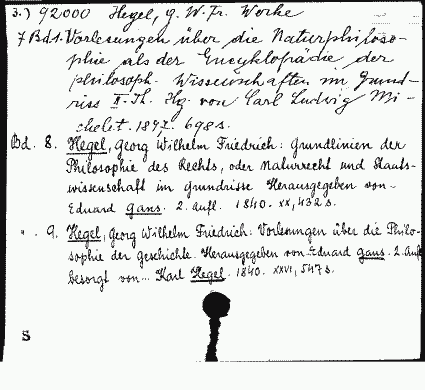 3.) 92000 Hegel, G. W. Fr. Werke
7 Bd.1. Vorlesungen über die Naturphiloso-
phie als der Encyklopädie der
philosoph. Wissenschaften im Grund-
riss II. Th. Hg. von Carl Ludwig Mi-
chelet. 1847. 698 s.
Bd. 8. Hegel, Georg Wilhelm Friedrich: Grundlinien der
Philosophie des Rechts, oder Naturrecht und Staats-
wissenschaft im Grundrisse Herausgegeben von
Eduard Gans. 2. Aufl. 1840. XX, 432 s.
" 9. Hegel, Georg Wilhelm Friedrich: Vorlesungen über die Philo-
sophie der Geschichte. Herausgegeben von Eduard Gans. 2. Aufl.
besorgt von... Karl Hegel. 1840. XXVI, 547 s.
S